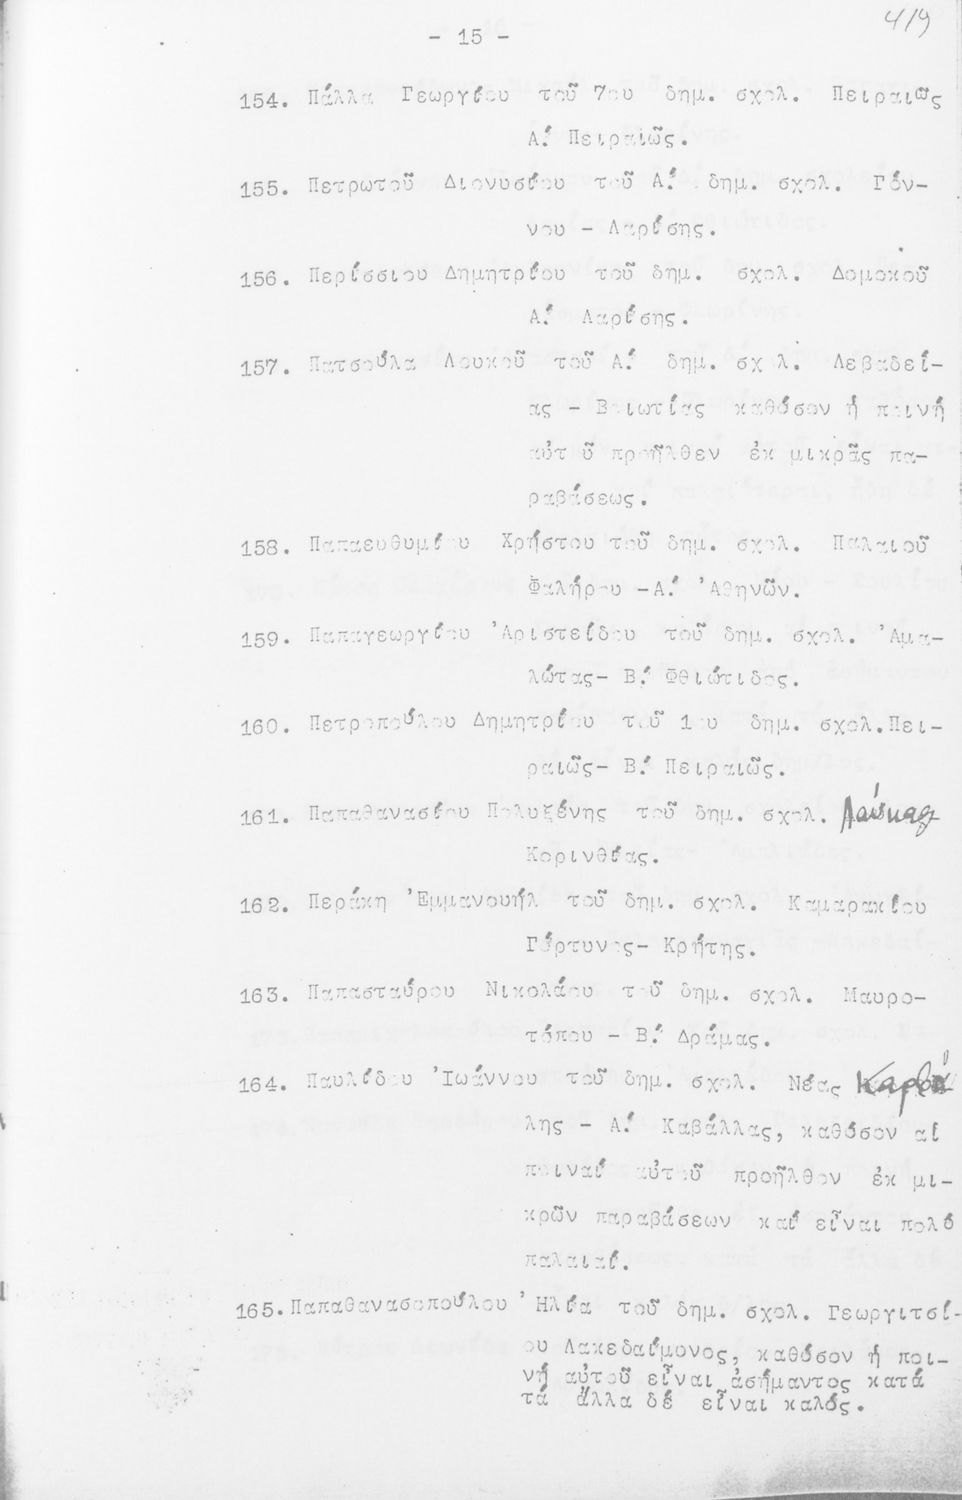 419
- 15 -
154. Πάλλα Γεωργίου τοῦ 7ου δημ. σχολ. Πειραιῶς
Α! Πειραιῶς.
155. Πετρωτοῦ Διονυσίου τοῦ Α! δημ. σχολ. Γόν-
νου - Λαρίσης.
156. Περίσσιου Δημητρίου τοῦ δημ. σχολ. Δομοκοῦ
Α! Λαρίσης.
157. Πατσούλα Λουκοῦ τοῦ Α! δημ. σχολ. Λεβαδεί-
ας - Βοιωτίας καθόσον ἡ ποινή
αὐτοῦ προῆλθεν ἐκ μικρᾶς πα-
ραβάσεως.
158. Παπαευθυμίου Χρήστου τοῦ δημ. σχολ. Παλαιοῦ
Φαλήρου -Α! Ἀθηνῶν.
159. Παπαγεωργίου Ἀριστείδου τοῦ δημ. σχολ. Ἀμα-
λώτας- Β! Φθιώτιδος.
160. Πετροπούλου Δημητρίου τοῦ 1ου δημ. σχολ.Πει-
ραιῶς- Β! Πειραιῶς.
161. Παπαθανασίου Πολυξένης τοῦ δημ. σχολ. Λαύκας
Κορινθίας.
162. Περάκη Ἐμμανουήλ τοῦ δημ. σχολ. Καμαρακίου
Γόρτυνος- Κρήτης.
163. Παπασταύρου Νικολάου τοῦ δημ. σχολ. Μαυρο-
τόπου - Β! Δράμας.
164. Παυλίδου Ἰωάννου τοῦ δημ. σχολ. Νέας Καρβά
λης - Α! Καβάλλας, καθόσον αἱ
ποιναί αὐτοῦ προῆλθον ἐκ μι-
κρῶν παραβάσεων καί εἶναι πολύ
παλαιαί.
165.Παπαθανασοπούλου Ἠλία τοῦ δημ. σχολ. Γεωργιτσί-
ου Λακεδαίμονος, καθόσον ἡ ποι-
νή αὐτοῦ εἶναι ἀσήμαντος κατά
τά ἄλλα δέ εἶναι καλός.